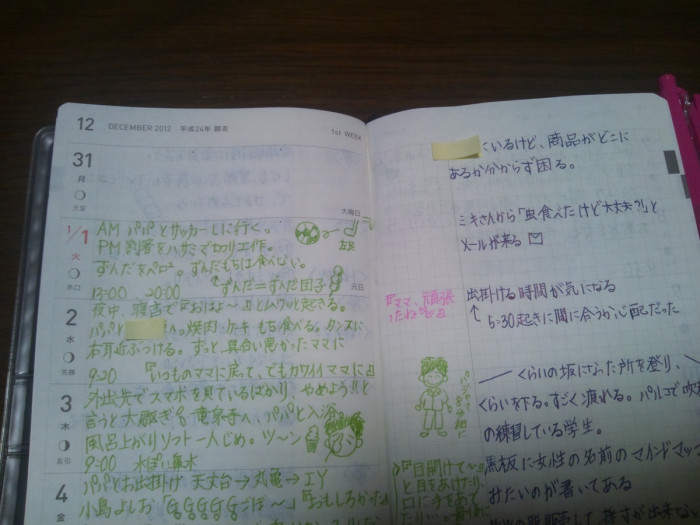 12 DECEMBER 2012 平成24年 師走
1st WEEK
31
月
大安
大晦日
1/1
火
赤口
元日
AM パパとサッカーしに行く。
PM 割箸をハサミで切り工作。
左足
ずんだをペロペロ。ずんだもちは食べない。
↑ずんだ=ずんだ団子
13:00 20:00
2
水
先勝
夜中、寝言で『おはよ〜』とムクッと起きる。
パパと へ。焼肉・ケーキ・もち食べる。タンスに
右耳近ぶつける。ずっと具合い悪かったママに
9:20 『いつものママに戻って、でもカワイイママに』
3
木
友引
外出先でスマホを見ているばかり、やめよう!!と
言うと大騒ぎ 竜泉寺へ、パパと入浴
風呂上がりソフト一人じめ。ツ〜ン
9:00 水ぽい鼻水
4
金
パパとお出掛け 天文台→丸亀→IY
小島よしお「GGGGGごぼ〜」『おもしろかった
『ママ、頑張
ったね』
パジャマで
『目開けて〜』
と目をあけたり、
口に手をあて
ているけど、商品がどこに
あるか分からず困る。
ミキさんから「虫食べたけど大丈夫?」と
メールが来る
出掛ける時間が気になる
↑5:30起きに間に合うか心配だった
くらいの坂になった所を登り、
くらいを下る。すごく疲れる。パルコで吹
の練習している学生。
黒板に女性の名前のマインドマップ
みたいのが書いてある